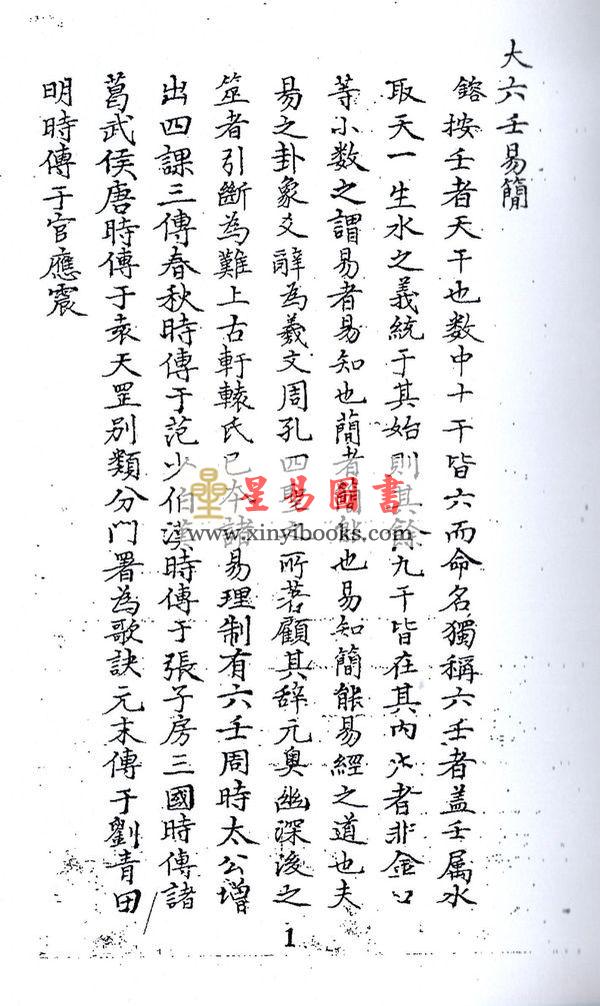 大六壬易簡
鎔按壬者天干也数中十干皆六而命名獨稱六壬者盖壬属水
取天一生水之義統于其始則其餘九干皆在其内大者非金口
等小数之謂易者易知也簡者簡能也易知簡能易經之道也夫
易之卦象爻辭為羲文周孔四聖之所著顧其辞元奥幽深後之
筮者引斷為難上古軒轅氏已本諸易理制有六壬周時太公增
出四課三傳春秋時傳于范少伯漢時傳于張子房三國時傳諸
葛武侯唐時傳于袁天罡别類分門署為歌訣元末傳于劉青田
明時傳于官應震
星易圖書
www.xinyibooks.com
1